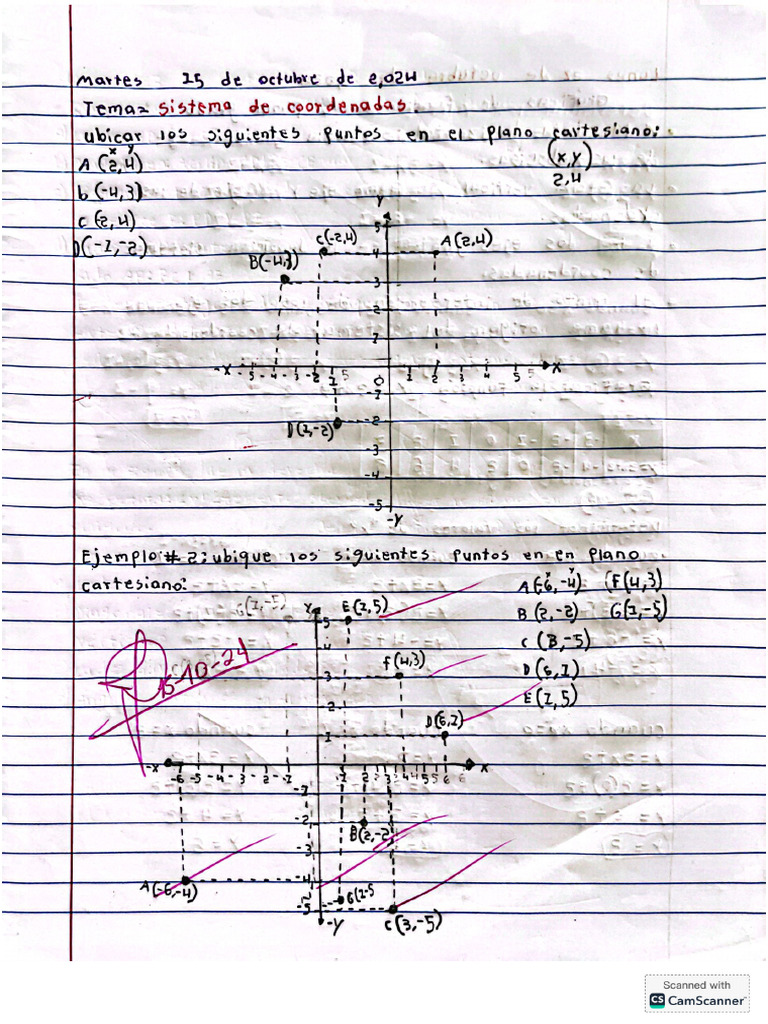 Martes 15 de octubre de 2,024
Tema= sistema de coordenadas.
ubicar los siguientes puntos en el plano cartesiano:
x y
A (2,4)
(x,y)
2,4
b (-4,3)
c (2,4)
D(-1,-2)
y
5
C(-2,4) A(2,4)
4
B(-4,3)
3
2
1
-x -5 -4 -3 -2 1 0 1 2 3 4 5 x
-1
D(1,-2) -2
-3
-4
-5
-y
Ejemplo # 2; ubique los siguientes puntos en en plano
cartesiano:
x y
A (-6, -4) (F(4,3)
B (2,-2) G(1,-5)
C (3,-5)
D (6,1)
E (1,5)
G(1,-5) y E(1,5)
5
15-10-24
4
F(4,3)
3
2
D(6,1)
1
-x -6 -5 -4 -3 -2 -1 1 2 3 4 5 6 x
-1
-2
B(2,-2)
-3
-4
A(-6,-4)
G(1-5
-5
C(3,-5)
-y
Scanned with
CS CamScanner